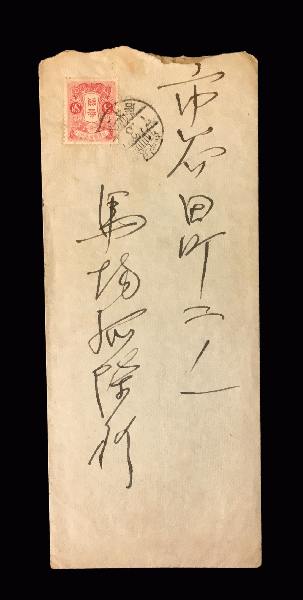 市谷田町二ノ一
馬場孤蝶様